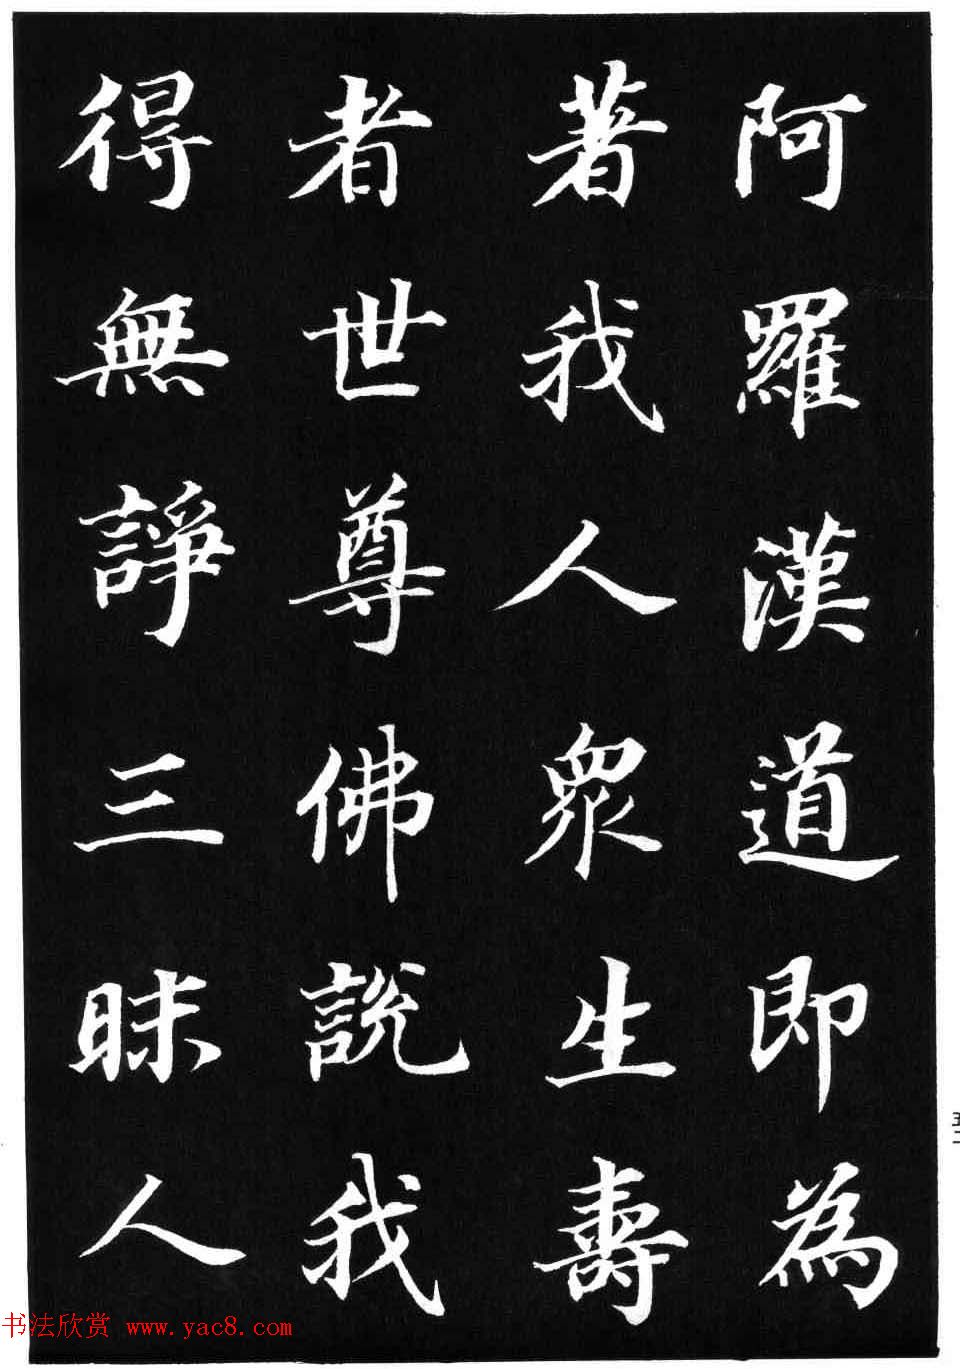 阿羅漢道即為
著我人眾生壽
者世尊佛說我
得無諍三昧人
书法欣赏 www.yac8.com